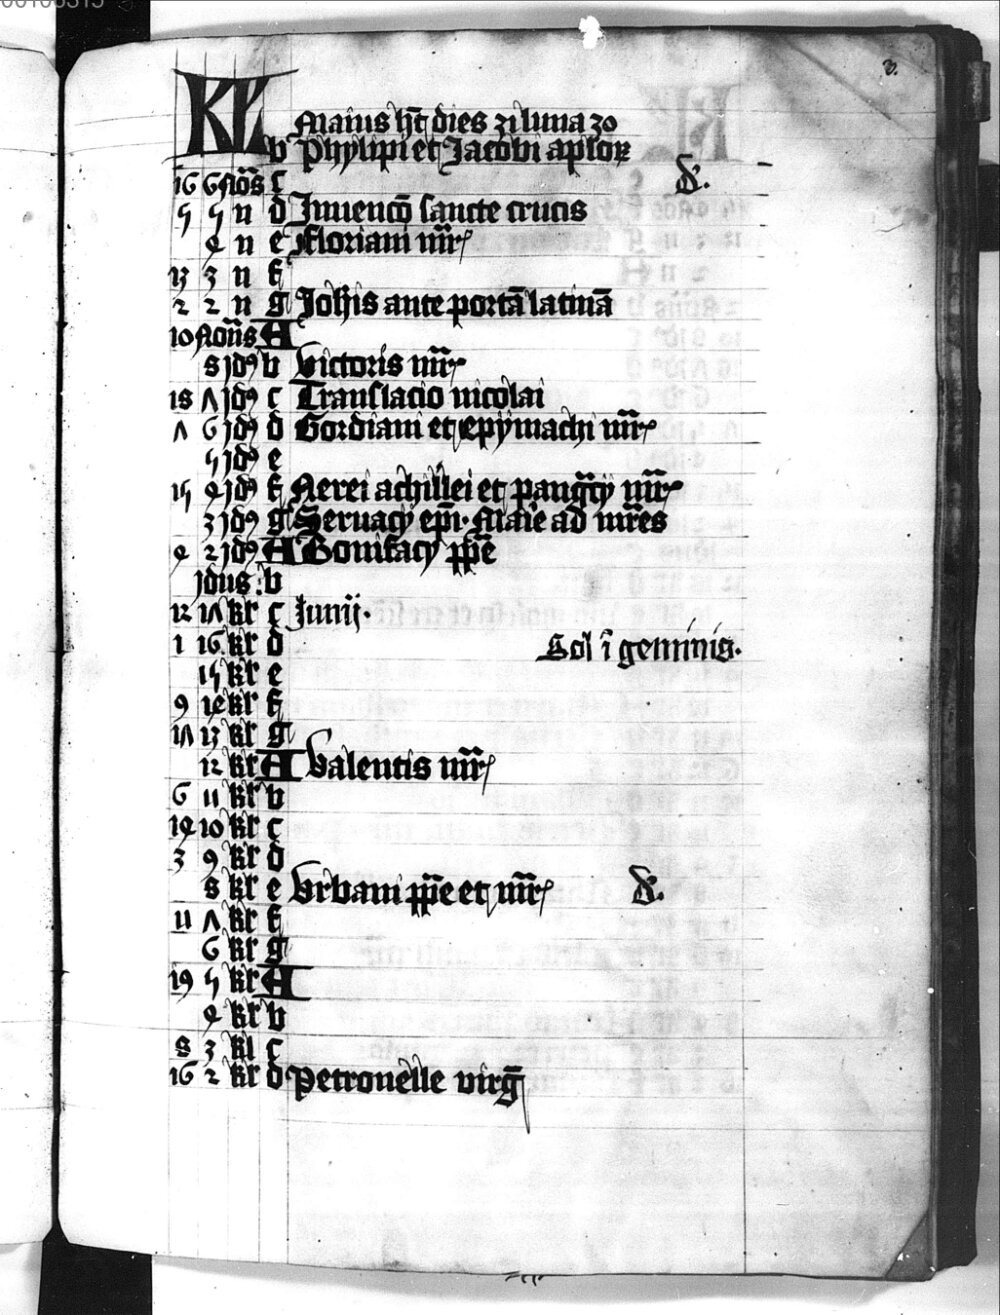 3.
KL Maius ht dies 31 luna 30
b Phylipi et Jacobi aplor
16 6 Nōs c &.
5 5 n d Jnuencō sancte crucis
4 n e Floriani mr
13 3 n f
2 2 n g Johis ante portā latinā
10 Nōns A
8 jdꝰ b Victoris mr
18 7 jdꝰ c Translacio nicolai
7 6 jdꝰ d Gordiani et epymachi mr
5 jdꝰ e
15 4 jdꝰ f Nerei achillei et pangcy mr
3 jdꝰ g Seruacy epi. Marie ad mres
4 2 jdꝰ A Bonifacy ppe
jdus b
12 17 kl c Junij.
1 16 kl d Sol ī geminis.
15 kl e
9 14 kl f
17 13 kl g
12 kl A Valentis mr
6 11 kl b
14 10 kl c
3 9 kl d
8 kl e Vrbani ppe et mr &.
11 7 kl f
6 kl g
19 5 kl A
4 kl b
8 3 kl c
16 2 kl d Petronelle virg